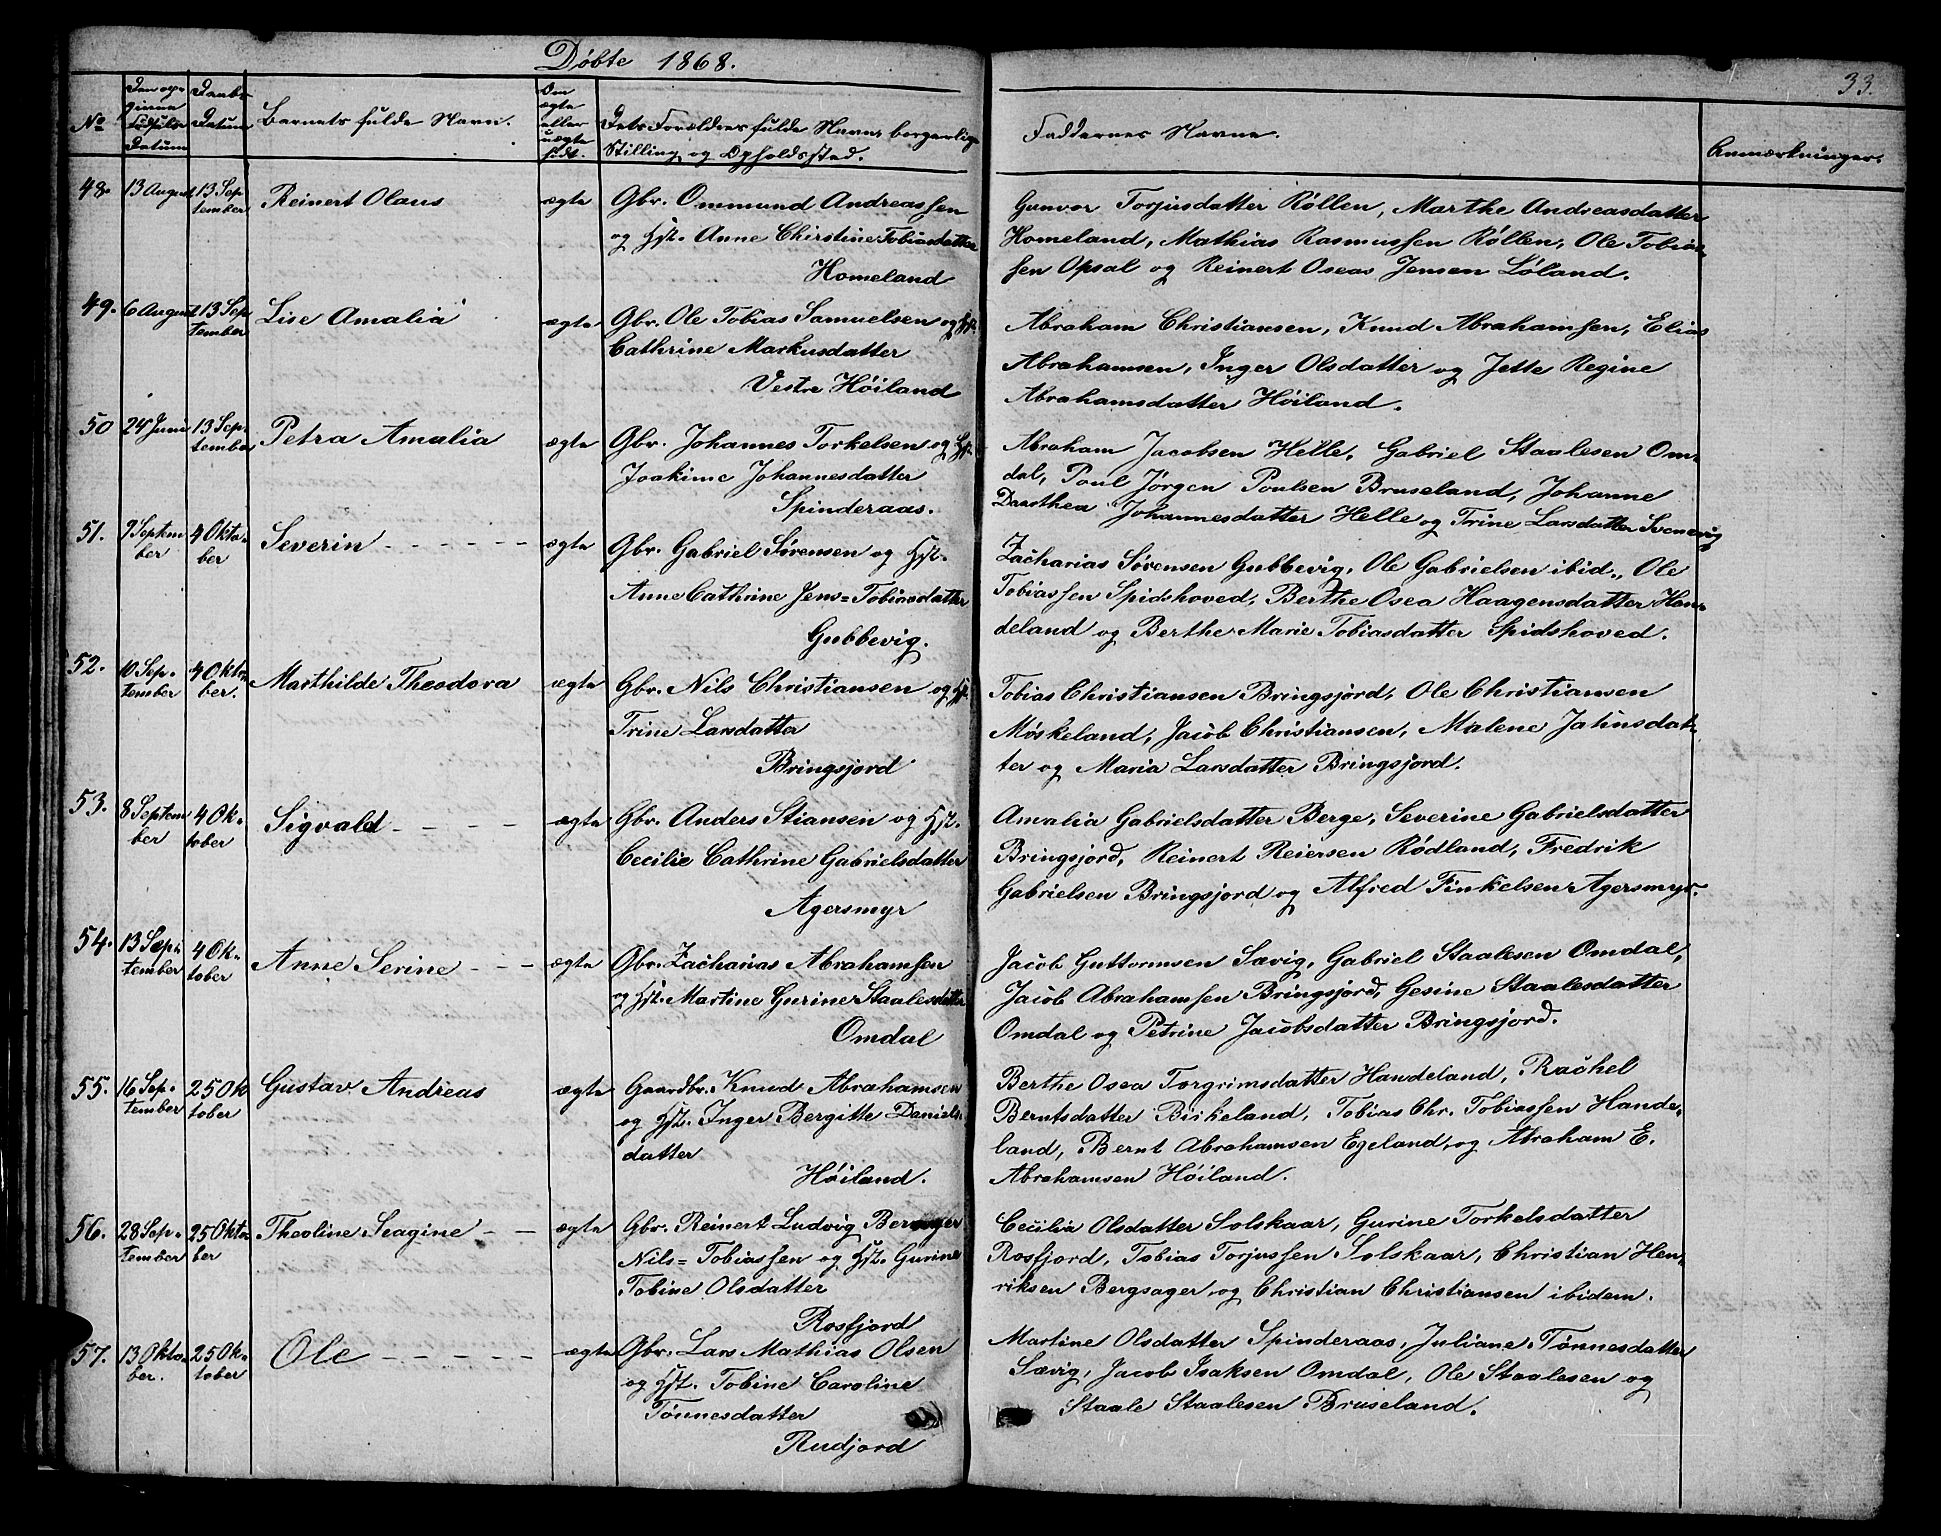 Døbte 1868.
33.
No
Datum
Daabs
Datum
Barnets fulde Navn.
Om
ægte
eller
uægte
født.
Dets Forældres fulde Navn, borgerlige
Stilling og Opholdssted.
Faddernes Navne.
Anmærkninger.
48. 13 August 13 Sep-
tember
Reinert Olaus
ægte
Gbr. Ommund Andreassen
og Hst. Anne Chirstine Tobiasdatter
Homeland
Gunvor Torjusdatter Røllen, Marthe Andreasdatter
Homeland, Mathias Rasmussen Røllen, Ole Tobias-
sen Opsal og Reinert Oseas Jensen Løland.
49. 6 August 13 Sep
tember
Lise Amalia
ægte
Gbr. Ole Tobias Samuelsen og Hst.
Cathrine Markusdatter
Vestre Høiland
Abraham Christiansen, Knud Abrahamsen, Elias
Abrahamsen, Inger Olsdatter og Jette Regine
Abrahamsdatter Høiland.
50 24 Juni 13 Sep-
tember
Petra Amalia
ægte
Gbr. Johannes Torkelsen og Hst.
Joakime Johannesdatter
Spinderaas.
Abraham Jacobsen Helle, Gabriel Staalesen Om-
dal, Poul Jørgen Poulsen Bruseland, Johanne
Daarthea Johannesdatter Helle og Trine Larsdatter Svenevig
51. 7 Septem
ber
4 Okto-
ber
Severin
ægte
Gbr. Gabriel Sørensen og Hst.
Anne Cathrine Jens=Tobiasdatter
Gubbevig.
Zacharias Sørensen Gubbevig, Ole Gabrielsen ibid., Ole
Tobiassen Spidshoved, Berthe Osea Haagensdatter Han-
deland og Berthe Marie Tobiasdatter Spidshoved.
52. 10 Sep-
tember
4 Okto
ber.
Marthilde Theodora
ægte
Gbr. Nils Christiansen og Hst.
Trine Larsdatter
Bringsjord
Tobias Christiansen Bringsjord, Ole Christiansen
Møskeland, Jacob Christiansen, Malene Jahnsdat-
ter og Maria Larsdatter Bringsjord.
53. 8 Septem
ber
4 Ok-
tober
Sigvald
ægte
Gbr. Anders Stiansen og Hst.
Cecilie Cathrine Gabrielsdatter
Agersmyr
Amalia Gabrielsdatter Berge, Severine Gabrielsdatter
Bringsjord, Reinert Reiersen Rødland, Fredrik
Gabrielsen Bringsjord og Alfred Finkelsen Agersmyr.
54. 13 Sep-
tember
4 Ok-
tober
Anne Serine
ægte
Gbr. Zacharias Abrahamsen
og Hst. Martine Gurine Staalesdatter
Omdal
Jacob Guttormsen Sævig, Gabriel Staalesen Omdal,
Jacob Abrahamsen Bringsjord, Gesine Staalesdatter
Omdal og Petrine Jacobsdatter Bringsjord.
55. 16 Sep-
tember
25 Ok
tober
Gustav Andreas
ægte
Gaardbr. Knud Abrahamsen
og Hst. Inger Bergitte Daniels-
datter
Høiland.
Berthe Osea Torgrimsdatter Handeland, Rachel
Berntsdatter Birkeland, Tobias Chr. Tobiassen Hande-
land, Bernt Abrahamsen Egeland, og Abraham E.
Abrahamsen Høiland.
56. 28 Sep-
tember
25 Okto
ber
Theoline Seagine
ægte
Gbr. Reinert Ludvig
Nils=Tobiassen og Hst. Gurine
Tobine Olsdatter
Rosfjord
Cecilia Olsdatter Solskaar, Gurine Torkelsdatter
Rosfjord, Tobias Torjussen Solskaar, Christian Hen-
riksen Bergsager og Christian Christiansen ibidem.
57. 13 Okto-
ber.
25 Ok-
tober
Ole
ægte
Gbr. Lars Mathias Olsen
og Hst. Tobine Caroline
Tønnesdatter
Rudjord
Martine Olsdatter Spinderaas, Juliane Tønnesdatter
Sævig, Jacob Isaksen Omdal, Ole Staalesen og
Staale Staalesen Bruseland.